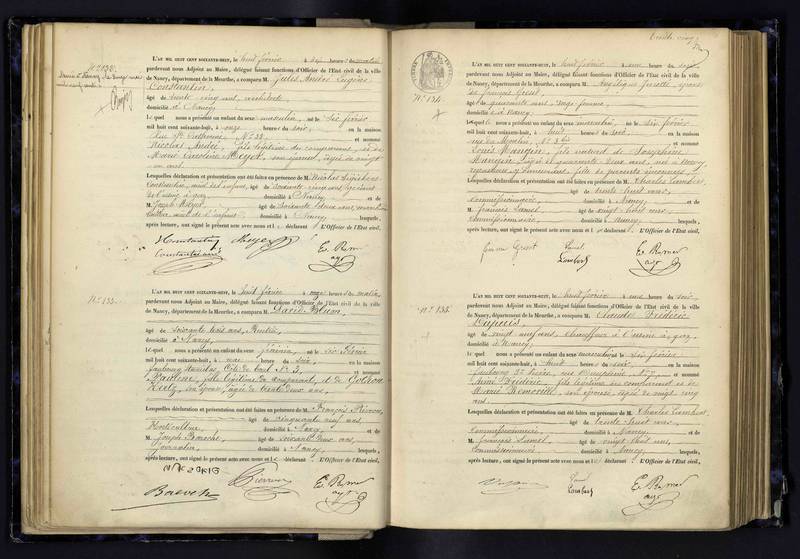 N° 132.
L'AN MIL HUIT CENT SOIXANTE-HUIT, le huit février à heure du matin
pardevant nous Adjoint au Maire, délégué faisant fonctions d'Officier de l'Etat civil de la ville
de Nancy, département de la Meurthe, a comparu M. Jules André Eugène
Constantin,
âgé de trente cinq ans, architecte,
domicilié à Nancy,
lequel nous a présenté un enfant du sexe masculin, né le six février
mil huit cent soixante-huit, à onze heures du soir, en la maison
Rue St N° 22, et nommé
Nicolas André, fils légitime du comparant, et de
Marie Caroline Meyer, son épouse, âgée de vingt
un ans.
Lesquelles déclaration et présentation ont été faites en présence de M. Nicolas
Constantin, âgé de soixante cinq ans,
domicilié à Nancy, et de
M. Joseph Meyer, âgé de soixante deux ans,
domicilié à Nancy, lesquels,
après lecture, ont signé le présent acte avec nous et le déclarant. L'Officier de l'Etat civil,
Constantin Meyer E. Remer
Constantin ainé adjt
N° 133.
L'AN MIL HUIT CENT SOIXANTE-HUIT, le huit février à onze heures du matin,
pardevant nous Adjoint au Maire, délégué faisant fonctions d'Officier de l'Etat civil de la ville
de Nancy, département de la Meurthe, a comparu M. David Blum,
âgé de soixante trois ans, Rentier,
domicilié à Nancy,
lequel nous a présenté un enfant du sexe féminin, né le six février
mil huit cent soixante-huit, à une heure du soir, en la maison
faubourg Stanislas, N° 3, et nommé
Pauline, fille légitime du comparant, et de
son épouse, âgée de trente deux ans,
Lesquelles déclaration et présentation ont été faites en présence de M. François Pierron,
âgé de cinquante neuf ans,
Horticulteur, domicilié à Nancy, et de
M. Joseph âgé de soixante deux ans,
Journalier, domicilié à Nancy, lesquels,
après lecture, ont signé le présent acte avec nous et le déclarant. L'Officier de l'Etat civil,
Pierron E. Remer
adjt
trente cinq
N° 134.
L'AN MIL HUIT CENT SOIXANTE-HUIT, le huit février à une heure du soir,
pardevant nous Adjoint au Maire, délégué faisant fonctions d'Officier de l'Etat civil de la ville
de Nancy, département de la Meurthe, a comparu M. Angélique épouse
de François Gresot,
âgée de quarante ans, sage femme,
domiciliée à Nancy,
laquelle nous a présenté un enfant du sexe masculin, né le six février
mil huit cent soixante-huit, à huit heures du soir, en la maison
rue du Moulin, N° 3 bis et nommé
Louis Mangin, fils naturel de Joséphine
Mangin, âgée de quarante deux ans, née à
fille de parents inconnus,
Lesquelles déclaration et présentation ont été faites en présence de M. Charles Lambert,
âgé de trente huit ans,
Commissionnaire, domicilié à Nancy, et de
M. François Lamel, âgé de vingt huit ans,
Commissionnaire, domicilié à Nancy, lesquels,
après lecture, ont signé le présent acte avec nous et la déclarante. L'Officier de l'Etat civil,
Gresot Lamel E. Remer
Lambert adjt
N° 135.
L'AN MIL HUIT CENT SOIXANTE-HUIT, le huit février à une heure du soir,
pardevant nous Adjoint au Maire, délégué faisant fonctions d'Officier de l'Etat civil de la ville
de Nancy, département de la Meurthe, a comparu M. Claude Frédéric
Dupuis,
âgé de vingt neuf ans, chauffeur à l'usine à gaz,
domicilié à Nancy,
lequel nous a présenté un enfant du sexe masculin, né le six février
mil huit cent soixante-huit, à huit heures du soir, en la maison
faubourg St Pierre, N° et nommé
Aimé Frédéric, fils légitime du comparant et de
Marie son épouse, âgée de vingt cinq
ans.
Lesquelles déclaration et présentation ont été faites en présence de M. Charles Lambert,
âgé de trente huit ans,
Commissionnaire, domicilié à Nancy, et de
M. François Lamel, âgé de vingt huit ans,
Commissionnaire, domicilié à Nancy, lesquels,
après lecture, ont signé le présent acte avec nous et le déclarant. L'Officier de l'Etat civil,
Lamel E. Remer
Lambert adjt